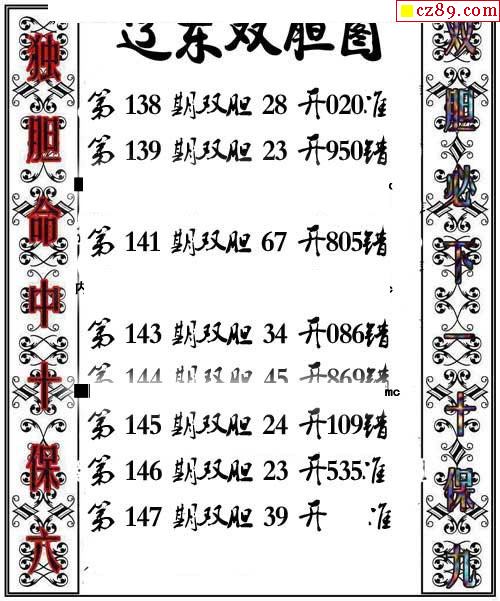 cz89.com
辽东双胆图
第 138 期双胆 28 开020准
第 139 期双胆 23 开950错
第 141 期双胆 67 开805错
第 143 期双胆 34 开086错
第 144 期双胆 45 开869错
mc
第 145 期双胆 24 开109错
第 146 期双胆 23 开535准
第 147 期双胆 39 开 准
独胆命中十保六
双胆必下一十保九